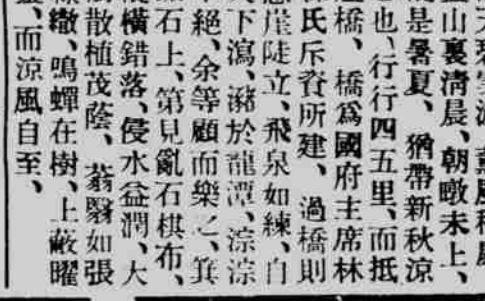 山裏清晨、朝暾未上、
是暑夏、猶帶新秋涼
也、行行四五里、而抵
橋、橋爲國府主席林
氏斥資所建、過橋則
崖陡立、飛泉如練、自
下瀉、瀦於龍潭、淙淙
絕、余等顧而樂之、箕
石上、第見亂石棋布、
橫錯落、侵水益潤、大
散植茂蔭、蓊翳如張
繖、鳴蟬在樹、上蔽曜
、而涼風自至、